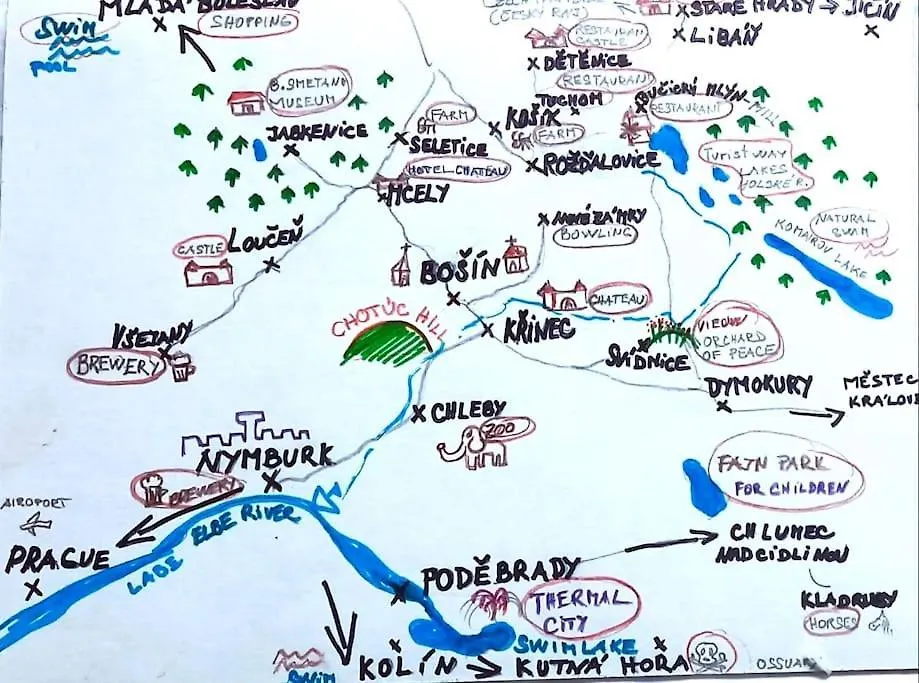 MLADÁ BOLESLAV
SHOPPING
SWIM
POOL
(ČESKÝ RÁJ)
STARÉ HRADY → JIČÍN
LIBÁŇ
RESTAURAN
CASTLE
DĚTĚNICE
RESTAURANT
TUCHOM
MLÝN-MILL
RESTAURANT
B. SMETANA
MUSEUM
JABKENICE
FARM
SELETICE
KOŠÍK
FARM
ROŽĎALOVICE
HOTEL CHATEAU
MCELY
TURIST WAY
LAKES
NATURAL
SWIM
KOMÁROV LAKE
NOVÉ ZÁMKY
BOWLING
CASTLE
LOUČEŇ
BOŠÍN
CHATEAU
CHOTUC HILL
KŘINEC
VIEW
ORCHARD
OF PEACE
SVÍDNICE
VŠEJANY
BREWERY
DYMOKURY
MĚSTEC
KRÁLOVÉ
CHLEBY
ZOO
NYMBURK
BREWERY
FAJN PARK
FOR CHILDREN
AIROPORT
PRAGUE
LABE
ELBE RIVER
CHLUMEC
NAD CIDLINOU
PODĚBRADY
THERMAL
CITY
KLADRUBY
HORSES
SWIM LAKE
SWIM
KOLÍN → KUTNÁ HORA
OSSUARY